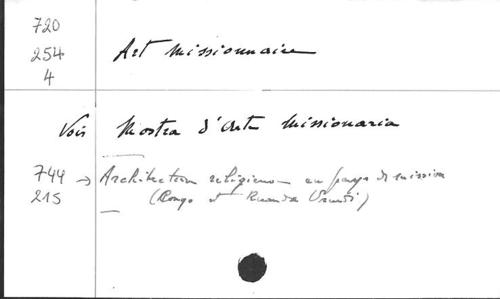 720
254
4
Art missionnaire
Vois Mostra d'Arte missionaria
744 → Architecture religieuse en pays de mission
215 (Congo et Ruanda Urundi)